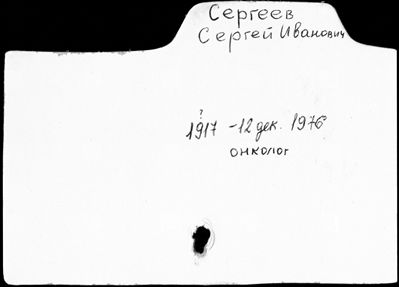 Сергеев
Сергей Иванович
?
1917 - 12 дек. 1976
онколог